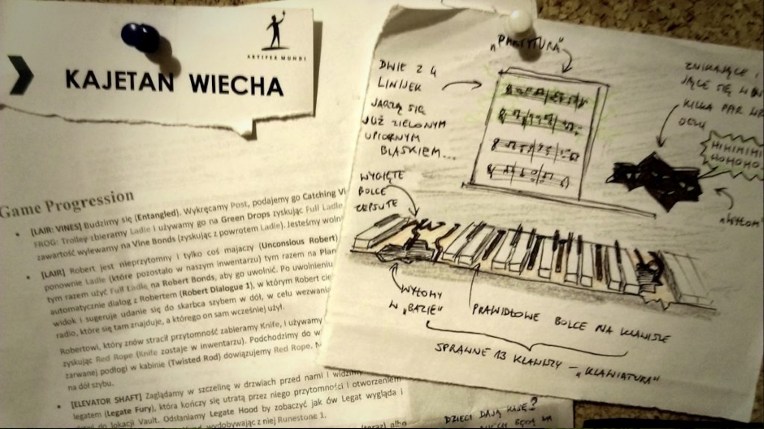 ARTIFEX MUNDI
KAJETAN WIECHA
Game Progression
[LAIR: VINES] Budzimy się (Entangled). Wykręcamy Post, podajemy go Catching Vi
FROG: Trolley zbieramy Ladle i używamy go na Green Drops zyskując Full Ladle
zawartość wylewamy na Vine Bonds (zyskując z powrotem Ladle). Jesteśmy woln
[LAIR] Robert jest nieprzytomny i tylko coś majaczy (Unconsious Robert)
ponownie Ladle (które pozostało w naszym inwentarzu) tym razem na Plan
tym razem użyć Full Ladle na Robert Bonds, aby go uwolnić. Po uwolnieniu
automatycznie dialog z Robertem (Robert Dialogue 1), w którym Robert cie
widok i sugeruje udanie się do skarbca szybem w dół, w celu wezwania
radio, które się tam znajduje, a którego on sam wcześniej użył.
Robertowi, który znów stracił przytomność zabieramy Knife, i używamy
zyskując Red Rope (Knife zostaje w inwentarzu). Podchodzimy do w
zarwanej podłogi w kabinie (Twisted Rod) dowiązujemy Red Rope,
na dół szybu.
[ELEVATOR SHAFT] Zaglądamy w szczelinę w drzwiach przed nami i widzim
legatem (Legate Fury), która kończy się utratą przez niego przytomności i otworzeniem
do lokacji Vault. Odsłaniamy Legate Hood by zobaczyć jak ów Legat wygląda i
wydobywając z niej Runestone 1.
"PARTYTURA"
DWIE Z 4
LINIJEK
JARZĄ SIĘ
JUŻ ZIELONYM
UPIORNYM
BLASKIEM...
ZNIKAJĄCE I
JĄCE SIĘ
KILKA PAR
OCZU
HIHIHIHI
HOHOHO
WYGIĘTE
BOLCE
ZEPSUTE
WYŁOMY
W "BAZIE"
PRAWIDŁOWE BOLCE NA KLAWISZE
SPRAWNE 13 KLAWISZY – "KLAWIATURA"
DZIECI DAJĄ